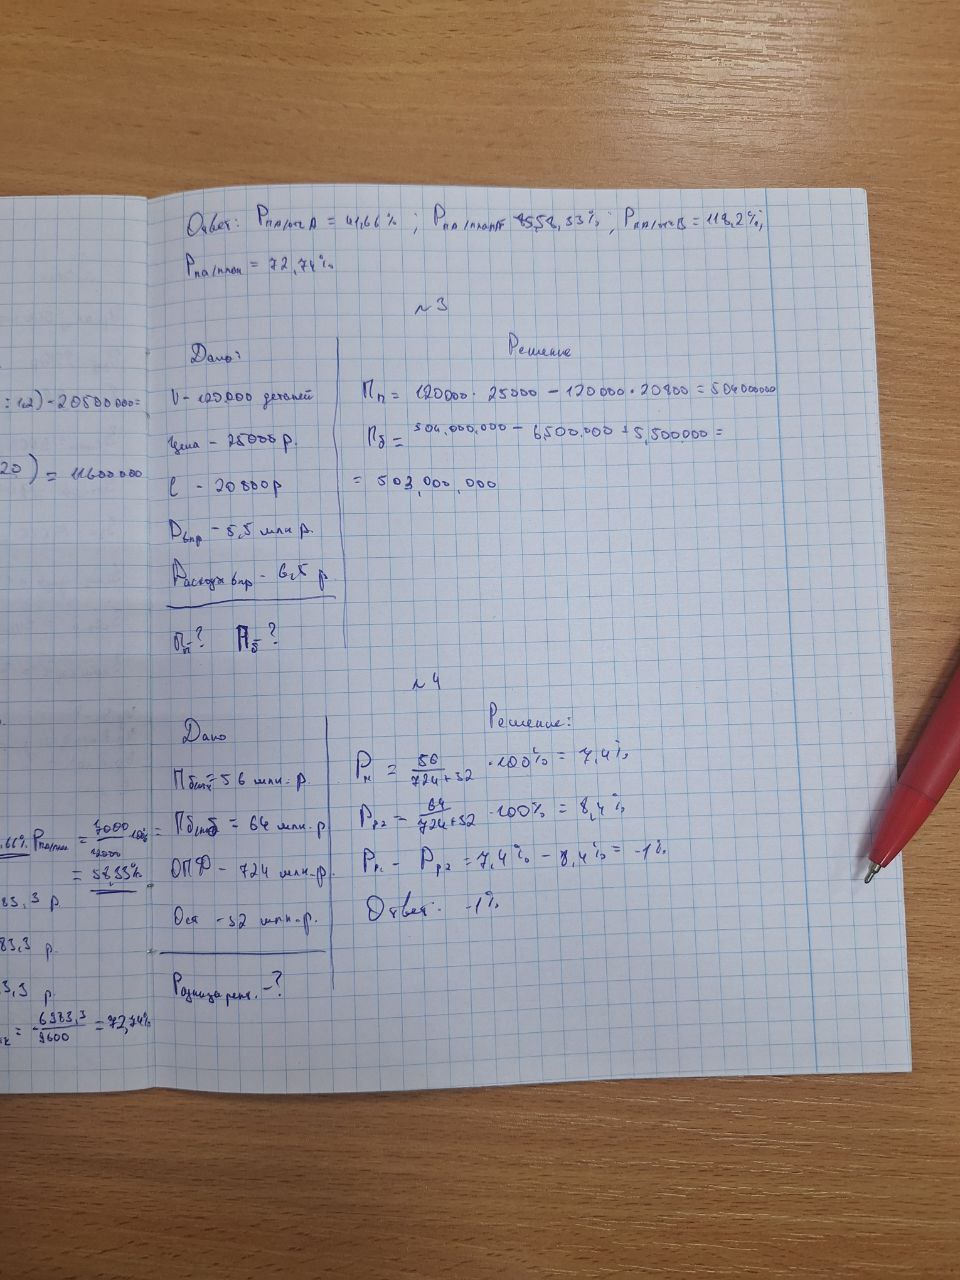 : 1,2) - 20500000 =
20) = 11600000
,66% Рпа/план = 7000/12000 · 100% =
= 58,33%
83,3 р.
83,3 р.
3,3 р.
= 6983,3/9600 = 72,74%
Ответ: Рпа/отч А = 41,66% ; Рпа/план А 58,33% ; Рпа/отч В = 118,2%;
Рпа/план = 72,74%
№3
Дано:
V - 120000 деталей
Цена - 25000 р.
С - 20800 р
Двпр - 5,5 млн р.
Расходы впр - 6,5 р
Пп? Пб?
Решение
Пп = 120000 · 25000 - 120000 · 20800 = 504000000
Пб = 504,000,000 - 6,500,000 + 5,500,000 =
= 503,000,000
№4
Дано
= 56 млн. р.
= 64 млн. р
ОПФ - 724 млн. р.
Ост - 32 млн. р.
Разница рент. - ?
Решение:
= 56/724+32 · 100% = 7,4%
Рр2 = 64/724+32 · 100% = 8,4%
Рр1 - Рр2 = 7,4% - 8,4% = -1%
Ответ: -1%